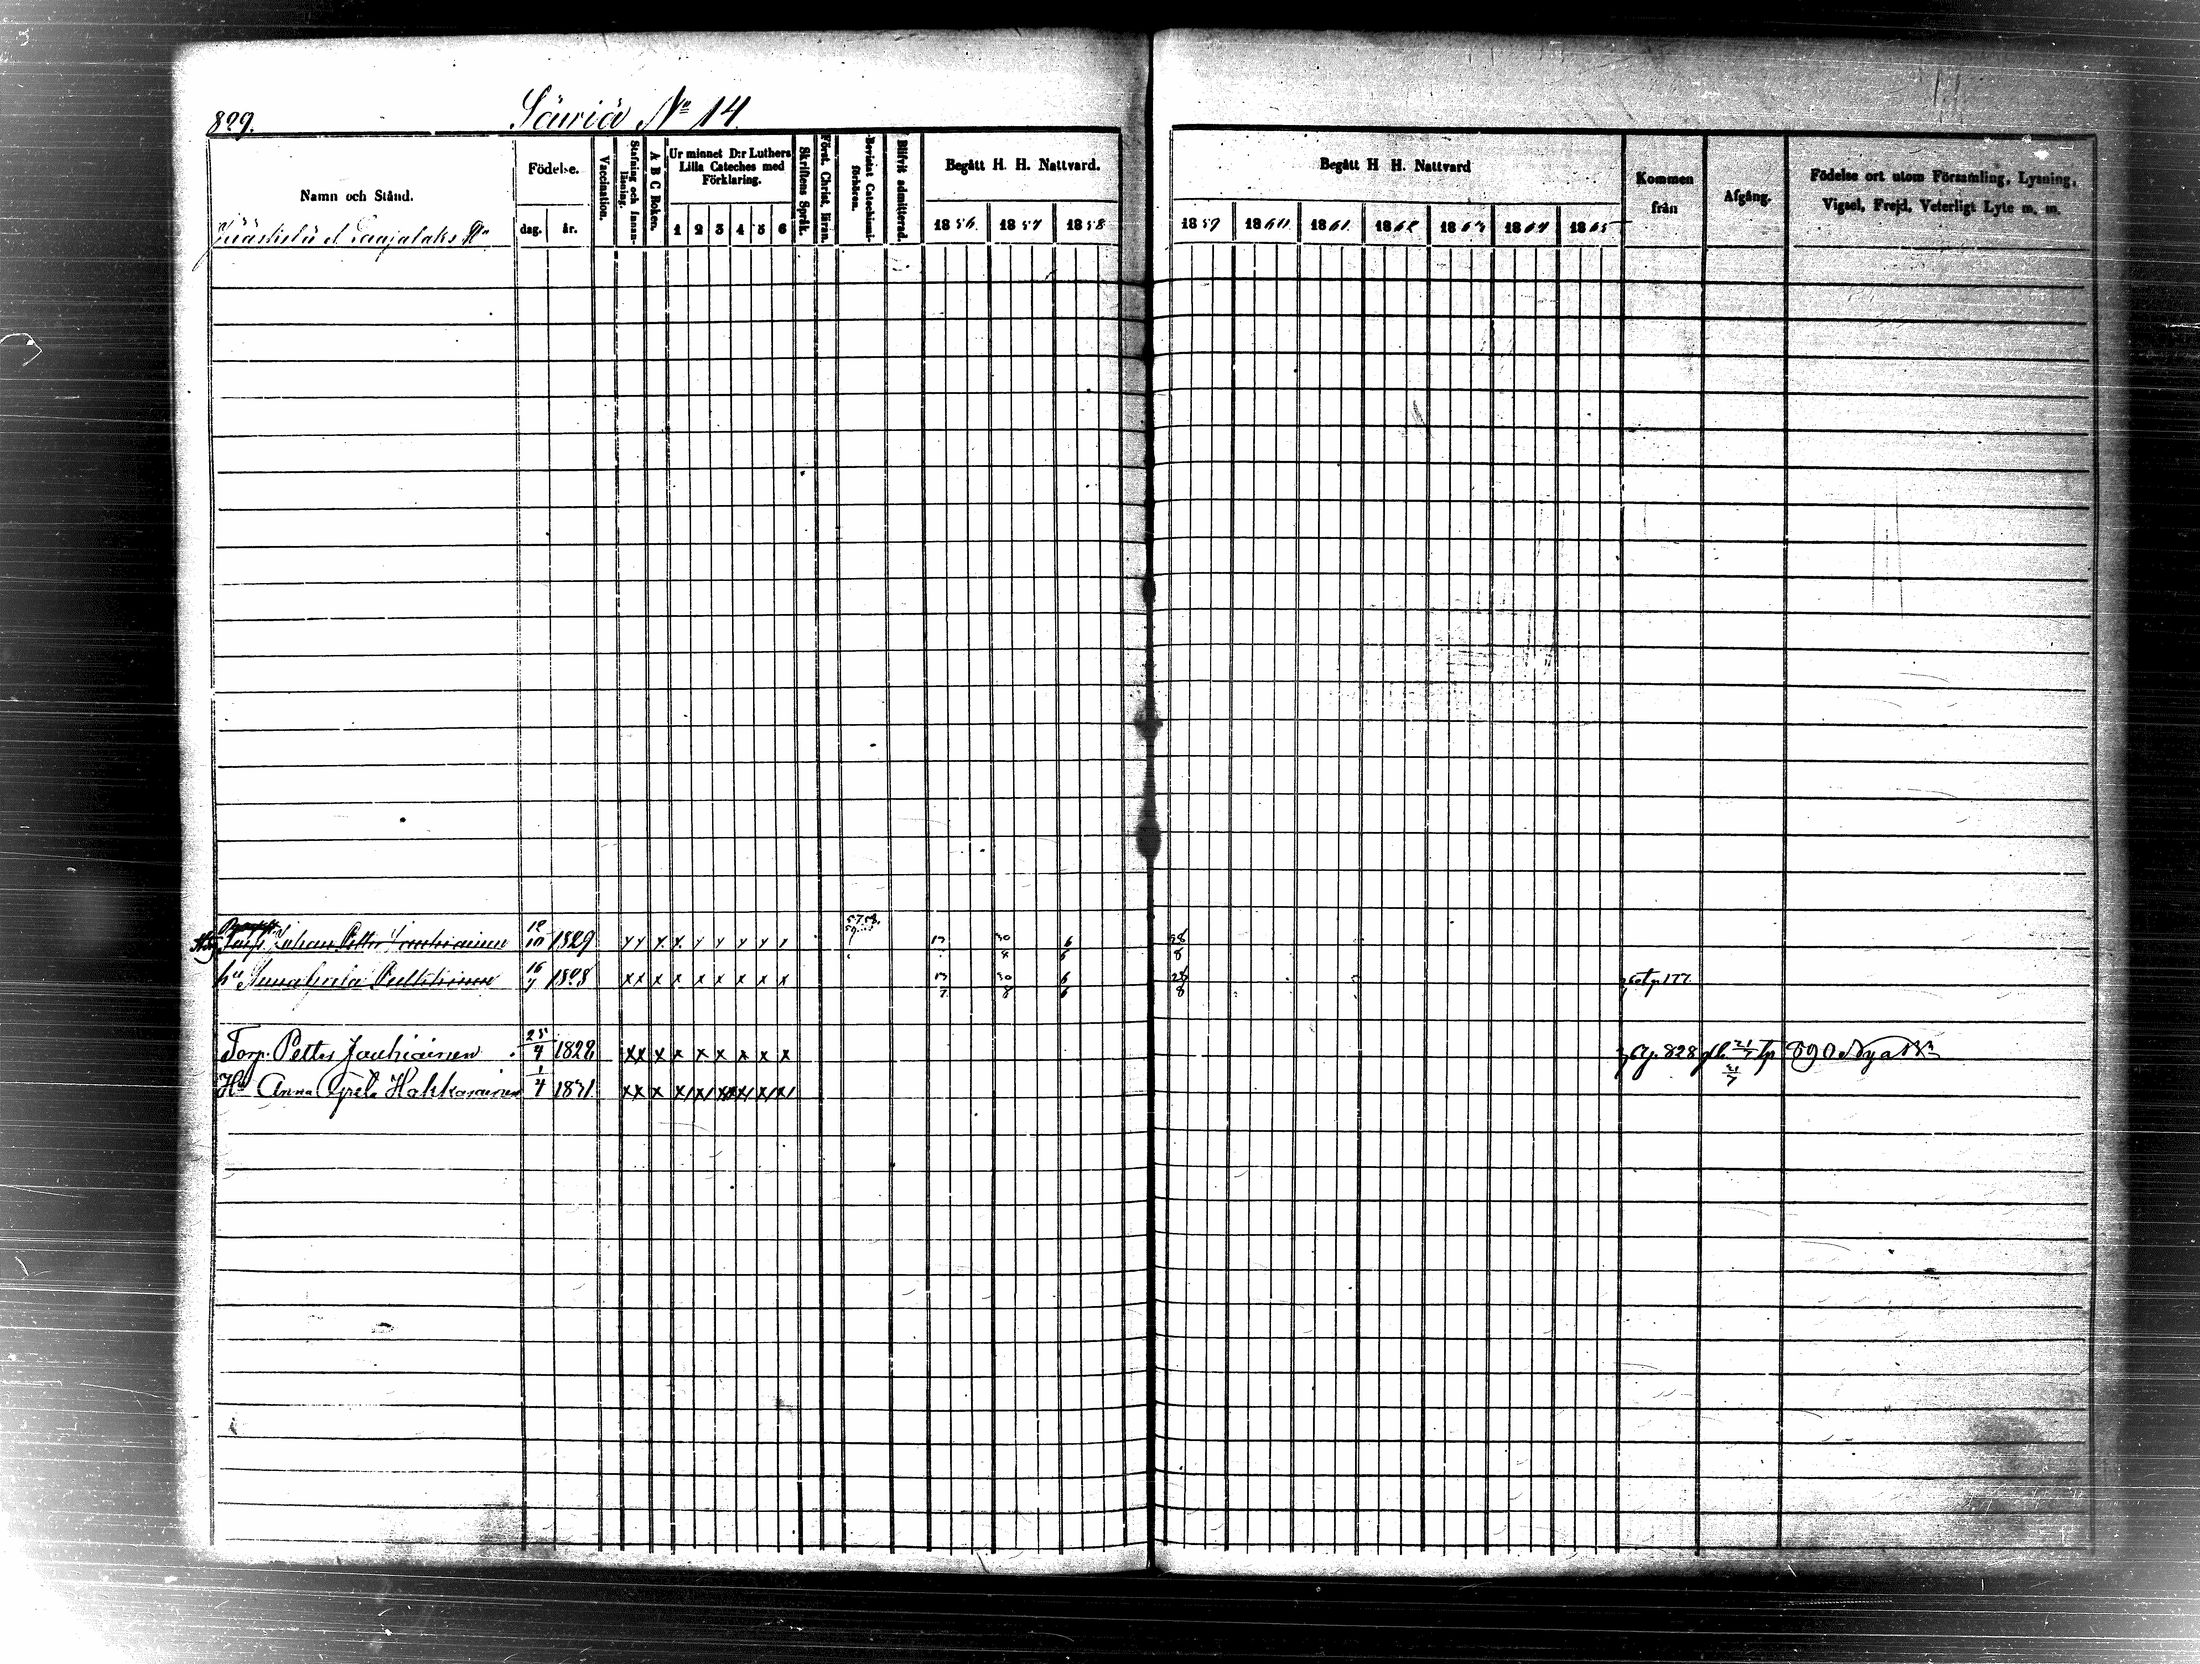 829.
Säviä No 14.
Namn och Stånd.
Födelse.
dag. år.
Vaccination.
Stafning och Innanläsning.
A B C Boken.
Ur minnet D:r Luthers Lilla Cateches med Förklaring.
1 2 3 4 5 6
Skriftens Språk.
Först. Christ. läran.
Bevistat Catechismiförhören.
Blifvit admitterad.
Begått H. H. Nattvard.
1856 1857 1858
Begått H H. Nattvard
1859 1860 1861 1862 1863 1864 1865
Kommen från
Afgång.
Födelse ort utom Församling, Lysning, Vigsel, Frejd, Veterligt Lyte m. m.
Johan Petter 12/10 1829 x x x x x x x x x 57 58. 59 30 6 28 8
hu Anna Greta 16/7 1828 x x x x x x x x x 30/8 6/6 28/8 177.
Torp. Petter Jauhiainen 25/4 1828 x x x x x x x x x 828 21/7 890 Nya
Hu Anna Greta Hakkarainen 1/4 1831 x x x x x x x x x